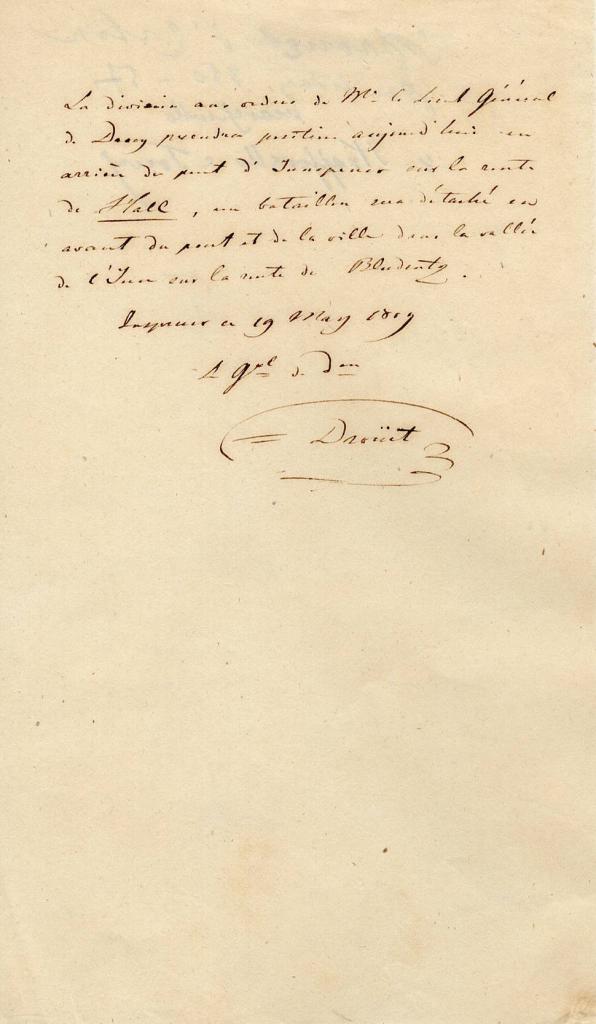 La division aux ordres de Mr. le Lieut Général
de Deroy prendra position aujourd'hui en
arrière du pont d'Innspruck sur la route
de Hall, un bataillon sera détaché en
avant du pont et de la ville dans la vallée
de l'Inn sur la route de Bludentz.
Inspruck ce 19 May 1809
Le gal de Don
Droüet